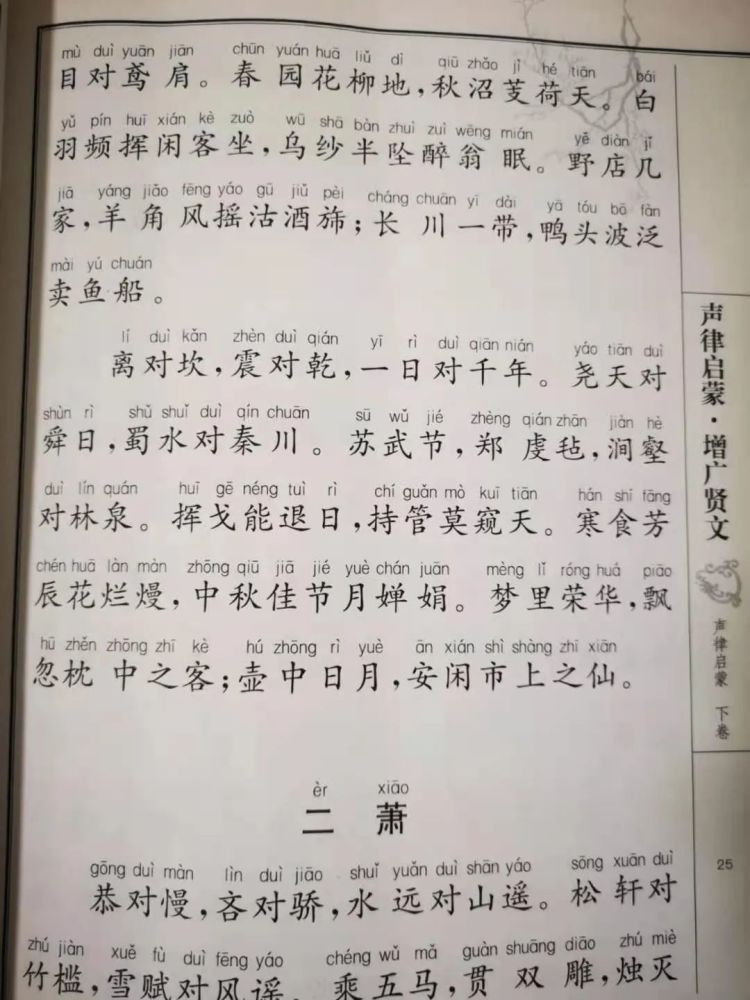 mù duì yuān jiān chūn yuán huā liǔ dì qiū zhǎo jì hé tiān bái
目对鸢肩。春园花柳地,秋沼芰荷天。白
yǔ pín huī xián kè zuò wū shā bàn zhuì zuì wēng mián yě diàn jǐ
羽频挥闲客坐,乌纱半坠醉翁眠。野店几
jiā yáng jiǎo fēng yáo gū jiǔ pèi cháng chuān yī dài yā tóu bō fàn
家,羊角风摇沽酒旆;长川一带,鸭头波泛
mài yú chuán
卖鱼船。
lí duì kǎn zhèn duì qián yī rì duì qiān nián yáo tiān duì
离对坎,震对乾,一日对千年。尧天对
shùn rì shǔ shuǐ duì qín chuān sū wǔ jié zhèng qián zhān jiàn hè
舜日,蜀水对秦川。苏武节,郑虔毡,涧壑
duì lín quán huī gē néng tuì rì chí guǎn mò kuī tiān hán shí fāng
对林泉。挥戈能退日,持管莫窥天。寒食芳
chén huā làn màn zhōng qiū jiā jié yuè chán juān mèng lǐ róng huá piāo
辰花烂熳,中秋佳节月婵娟。梦里荣华,飘
hū zhěn zhōng zhī kè hú zhōng rì yuè ān xián shì shàng zhī xiān
忽枕中之客;壶中日月,安闲市上之仙。
èr xiāo
二 萧
gōng duì màn lìn duì jiāo shuǐ yuǎn duì shān yáo sōng xuān duì
恭对慢,吝对骄,水远对山遥。松轩对
zhú jiàn xuě fù duì fēng yáo chéng wǔ mǎ guàn shuāng diāo zhú miè
竹槛,雪赋对风谣。乘五马,贯双雕,烛灭
声律启蒙·增广贤文
声律启蒙 下卷
25